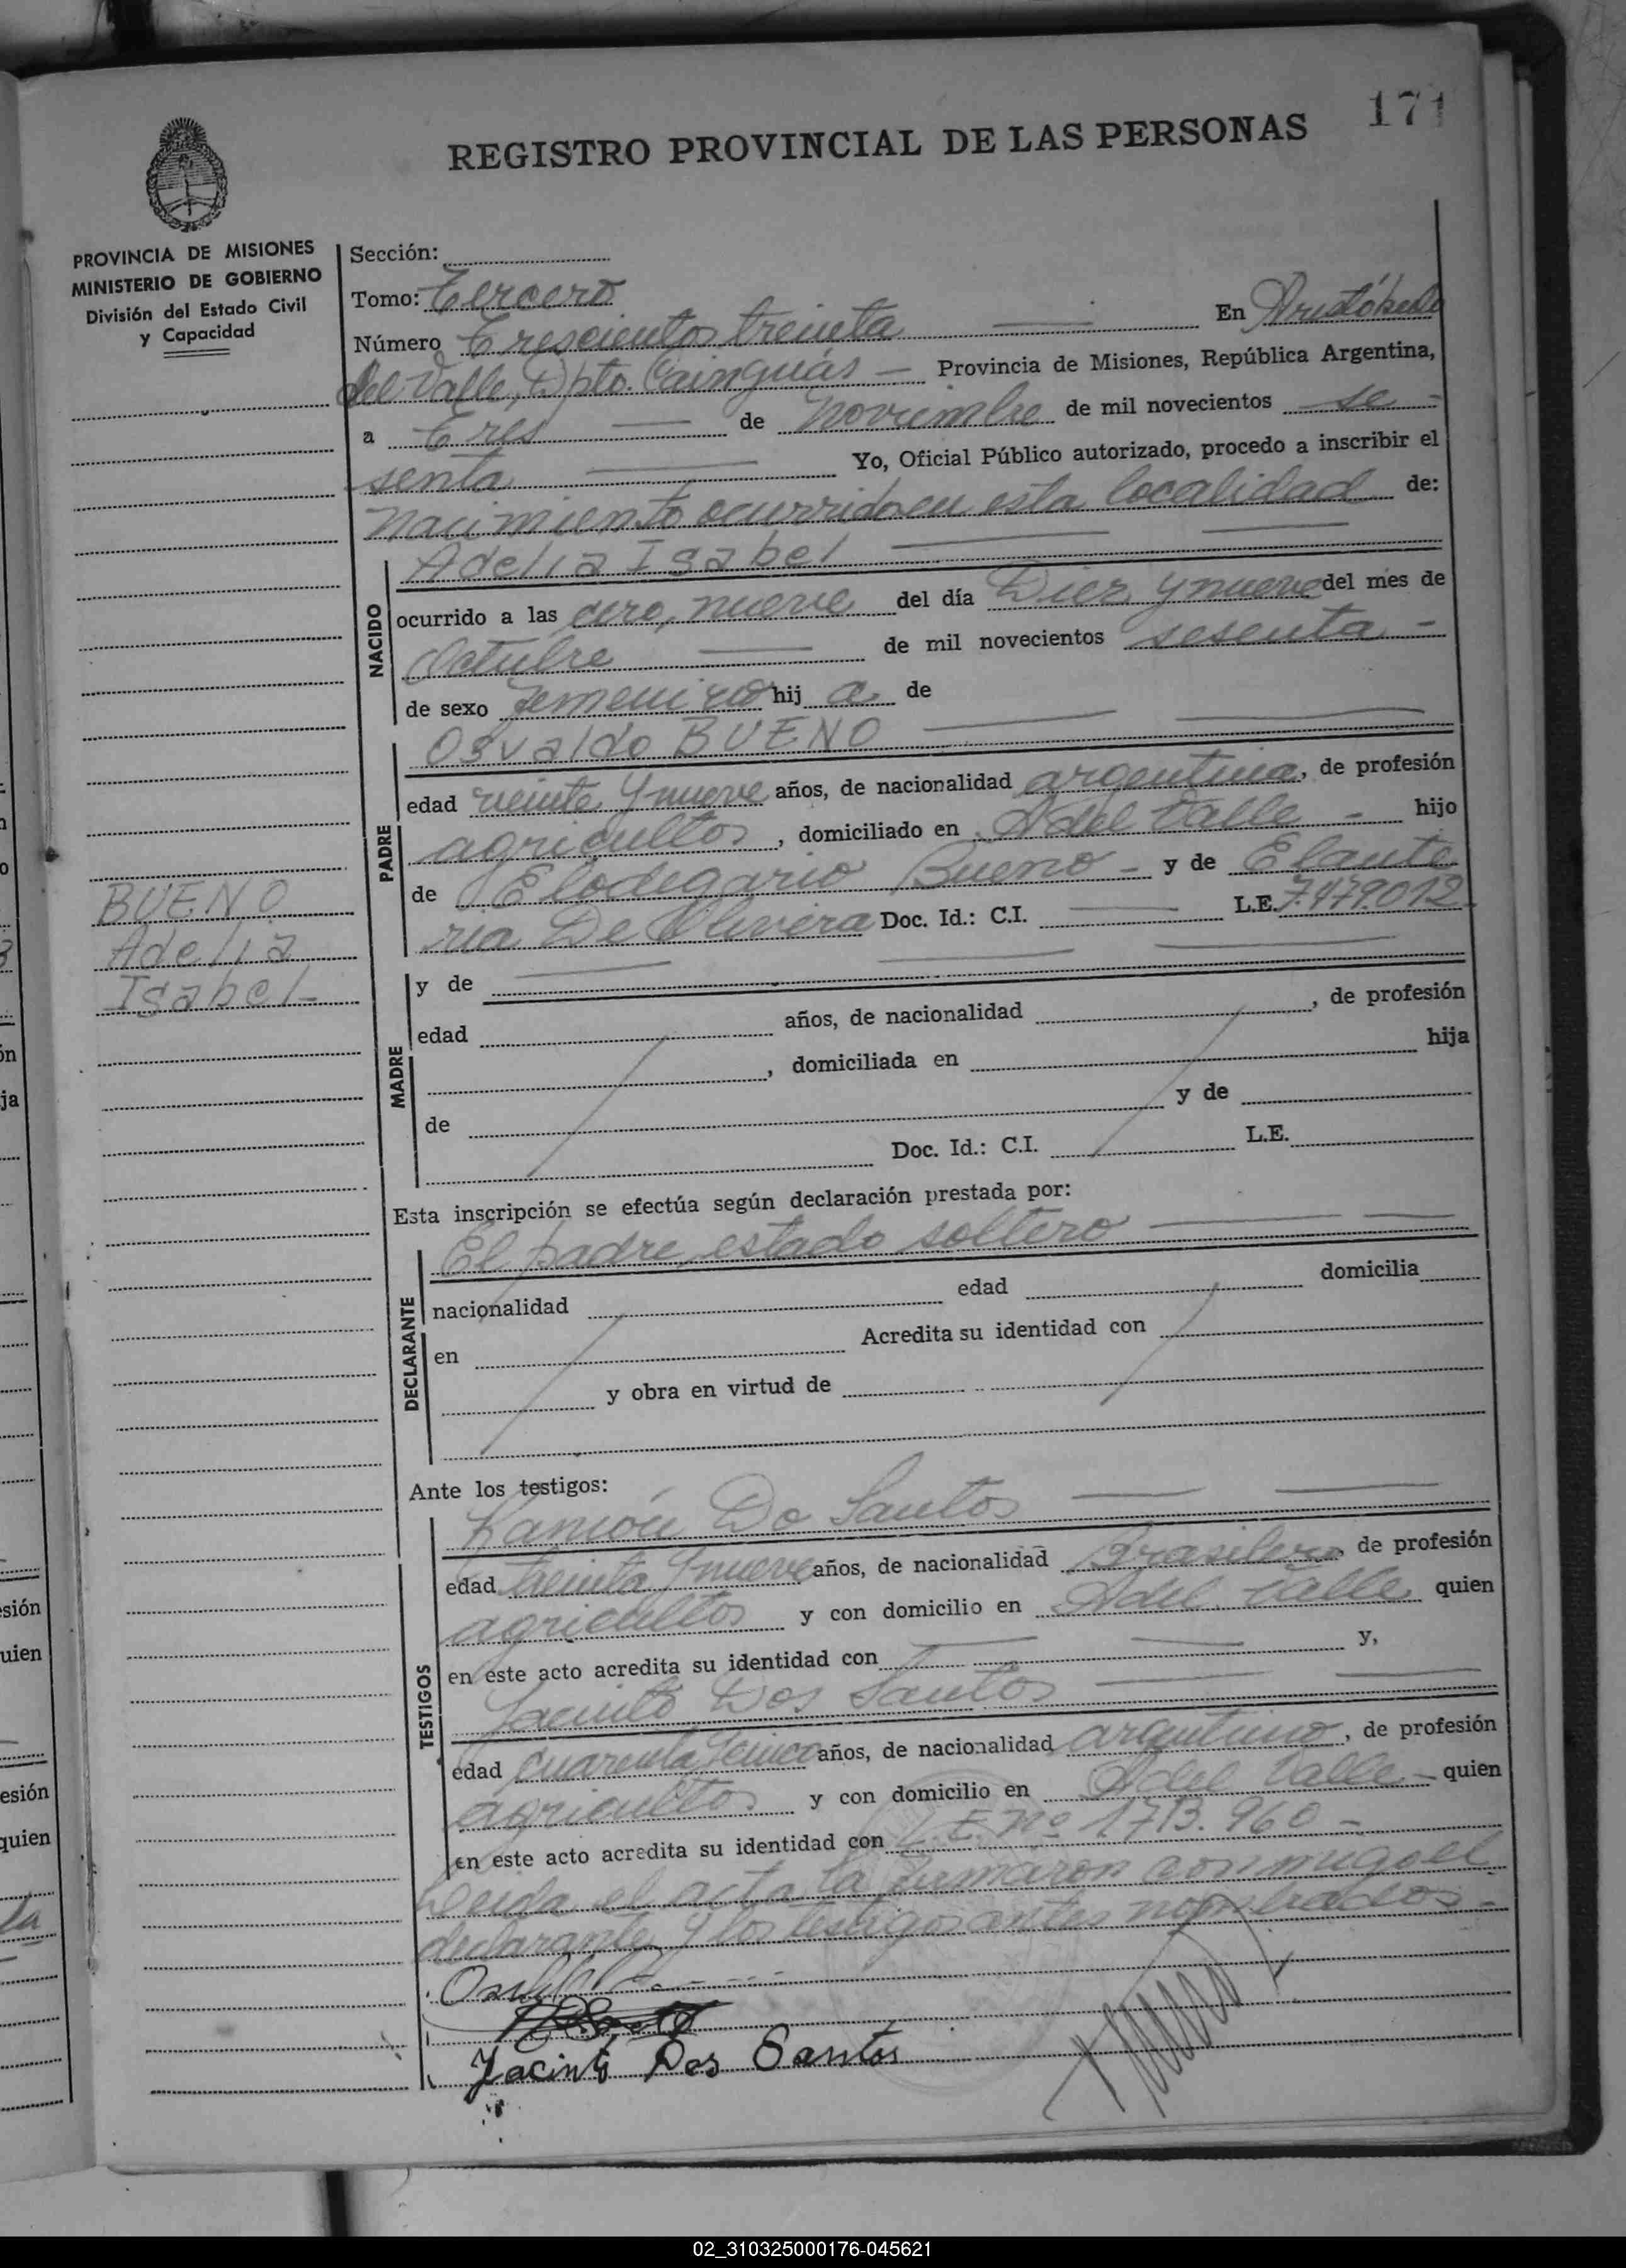 171
REGISTRO PROVINCIAL DE LAS PERSONAS
PROVINCIA DE MISIONES
MINISTERIO DE GOBIERNO
División del Estado Civil
y Capacidad
Sección:
Tomo: Tercero
Número Trescientos treinta En Aristóbulo
del Valle, Dpto. Cainguás — Provincia de Misiones, República Argentina,
a Tres de Noviembre de mil novecientos se-
senta Yo, Oficial Público autorizado, procedo a inscribir el
Nacimiento ocurrido en esta localidad de:
NACIDO
Adelia Isabel
ocurrido a las cero, nueve del día Diez y nueve del mes de
Octubre de mil novecientos sesenta -
de sexo femenino hij a de
PADRE
Osvaldo BUENO
edad veinte y nueve años, de nacionalidad argentina, de profesión
agricultor, domiciliado en A del Valle - hijo
de Elodegario Bueno - y de Elaute
ria De Olivera Doc. Id.: C.I. L.E. 7.479.012
BUENO
Adelia
Isabel-
MADRE
y de
edad años, de nacionalidad , de profesión
, domiciliada en hija
de y de
Doc. Id.: C.I. L.E.
Esta inscripción se efectúa según declaración prestada por:
DECLARANTE
El padre, estado soltero
nacionalidad edad domicilia
en Acredita su identidad con
y obra en virtud de
Ante los testigos:
TESTIGOS
Ramón Do Santos
edad treinta y nueve años, de nacionalidad Brasilero, de profesión
agricultor y con domicilio en A del Valle quien
en este acto acredita su identidad con y,
Jacinto Dos Santos
edad cuarenta y cinco años, de nacionalidad argentino, de profesión
agricultor y con domicilio en A del Valle - quien
en este acto acredita su identidad con L.E. Nº 1713.960 -
Leida el acta la firmaron conmigo el
declarante y los testigos antes nombrados -
Jacinto Dos Santos
02_310325000176-045621